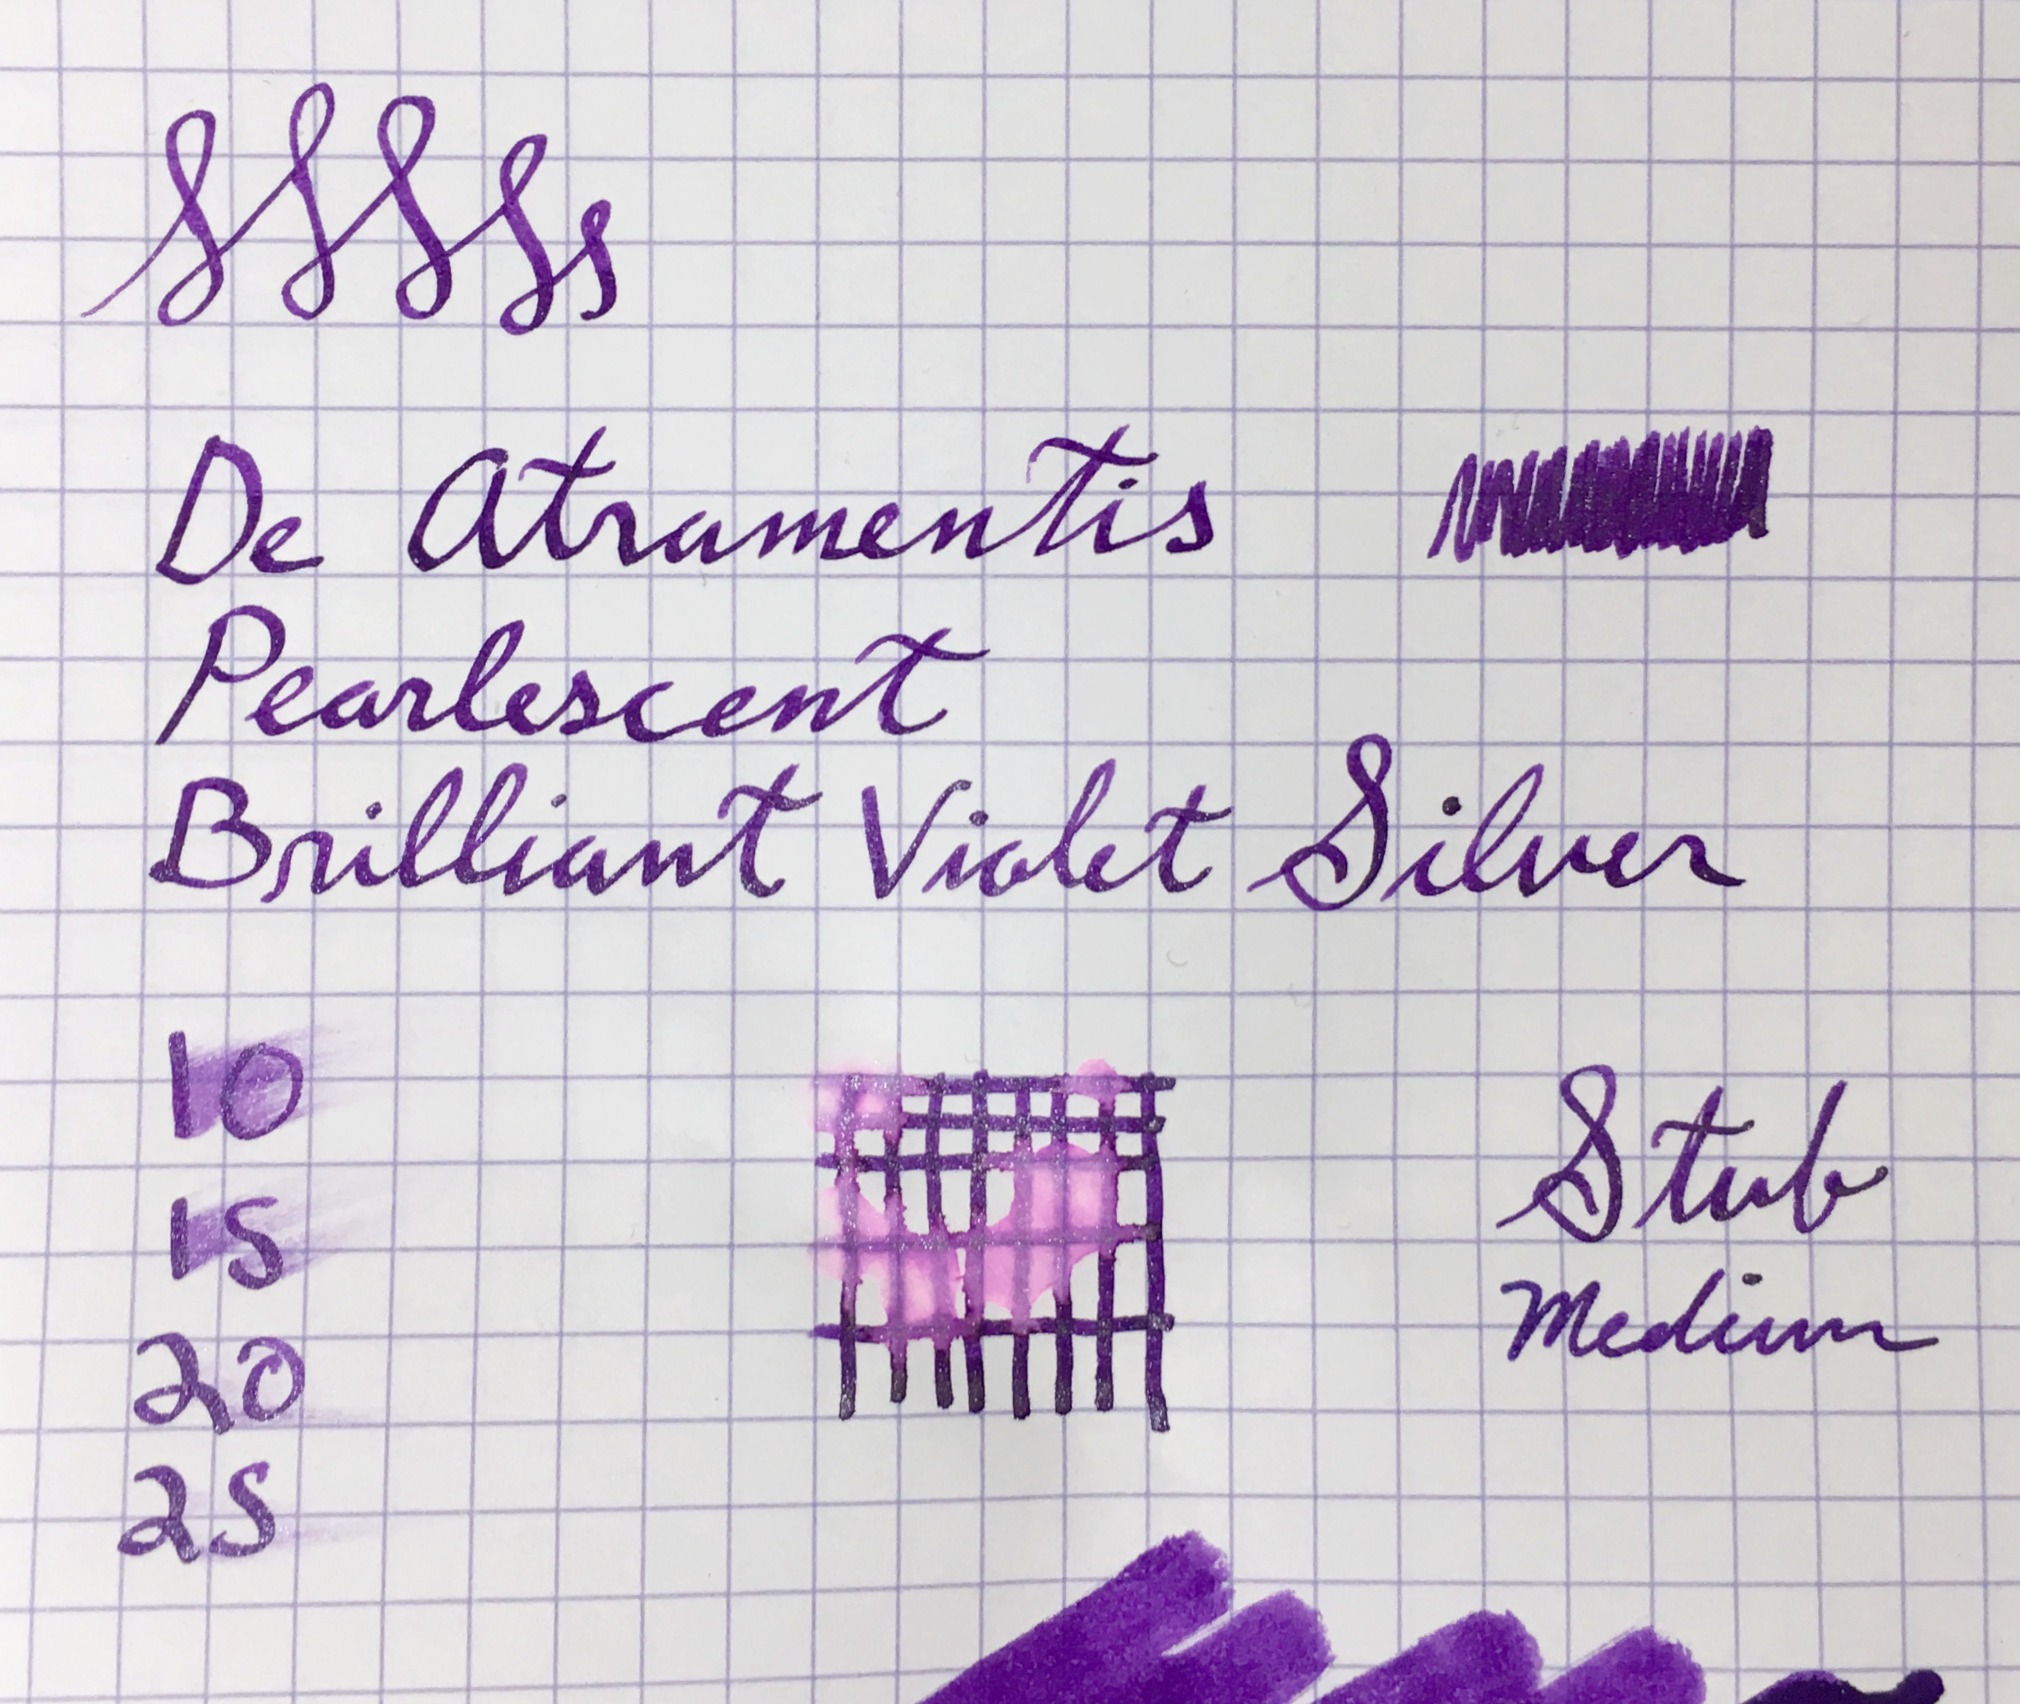 SSSSs
De Atramentis
Pearlescent
Brilliant Violet Silver
10
15
20
25
Stub
Medium